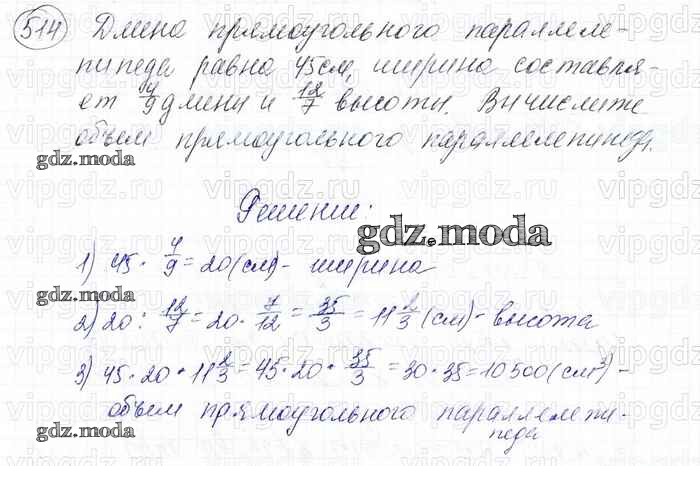 514 Длина прямоугольного параллеле-
пипеда равна 45см, ширина составля-
ет 4/9 длини и 12/7 высоти. Вичислите
объем прямоугольного параллелепипеда.
gdz.moda
Решение:
gdz.moda
1) 45 · 4/9 = 20 (см) - ширина
2) 20 : 12/7 = 20 · 7/12 = 35/3 = 11 2/3 (см) - высота
3) 45 · 20 · 11 2/3 = 45 · 20 · 35/3 = 30 · 35 = 10 500 (см³) -
объем прямоугольного параллелепи-
gdz.moda
педа